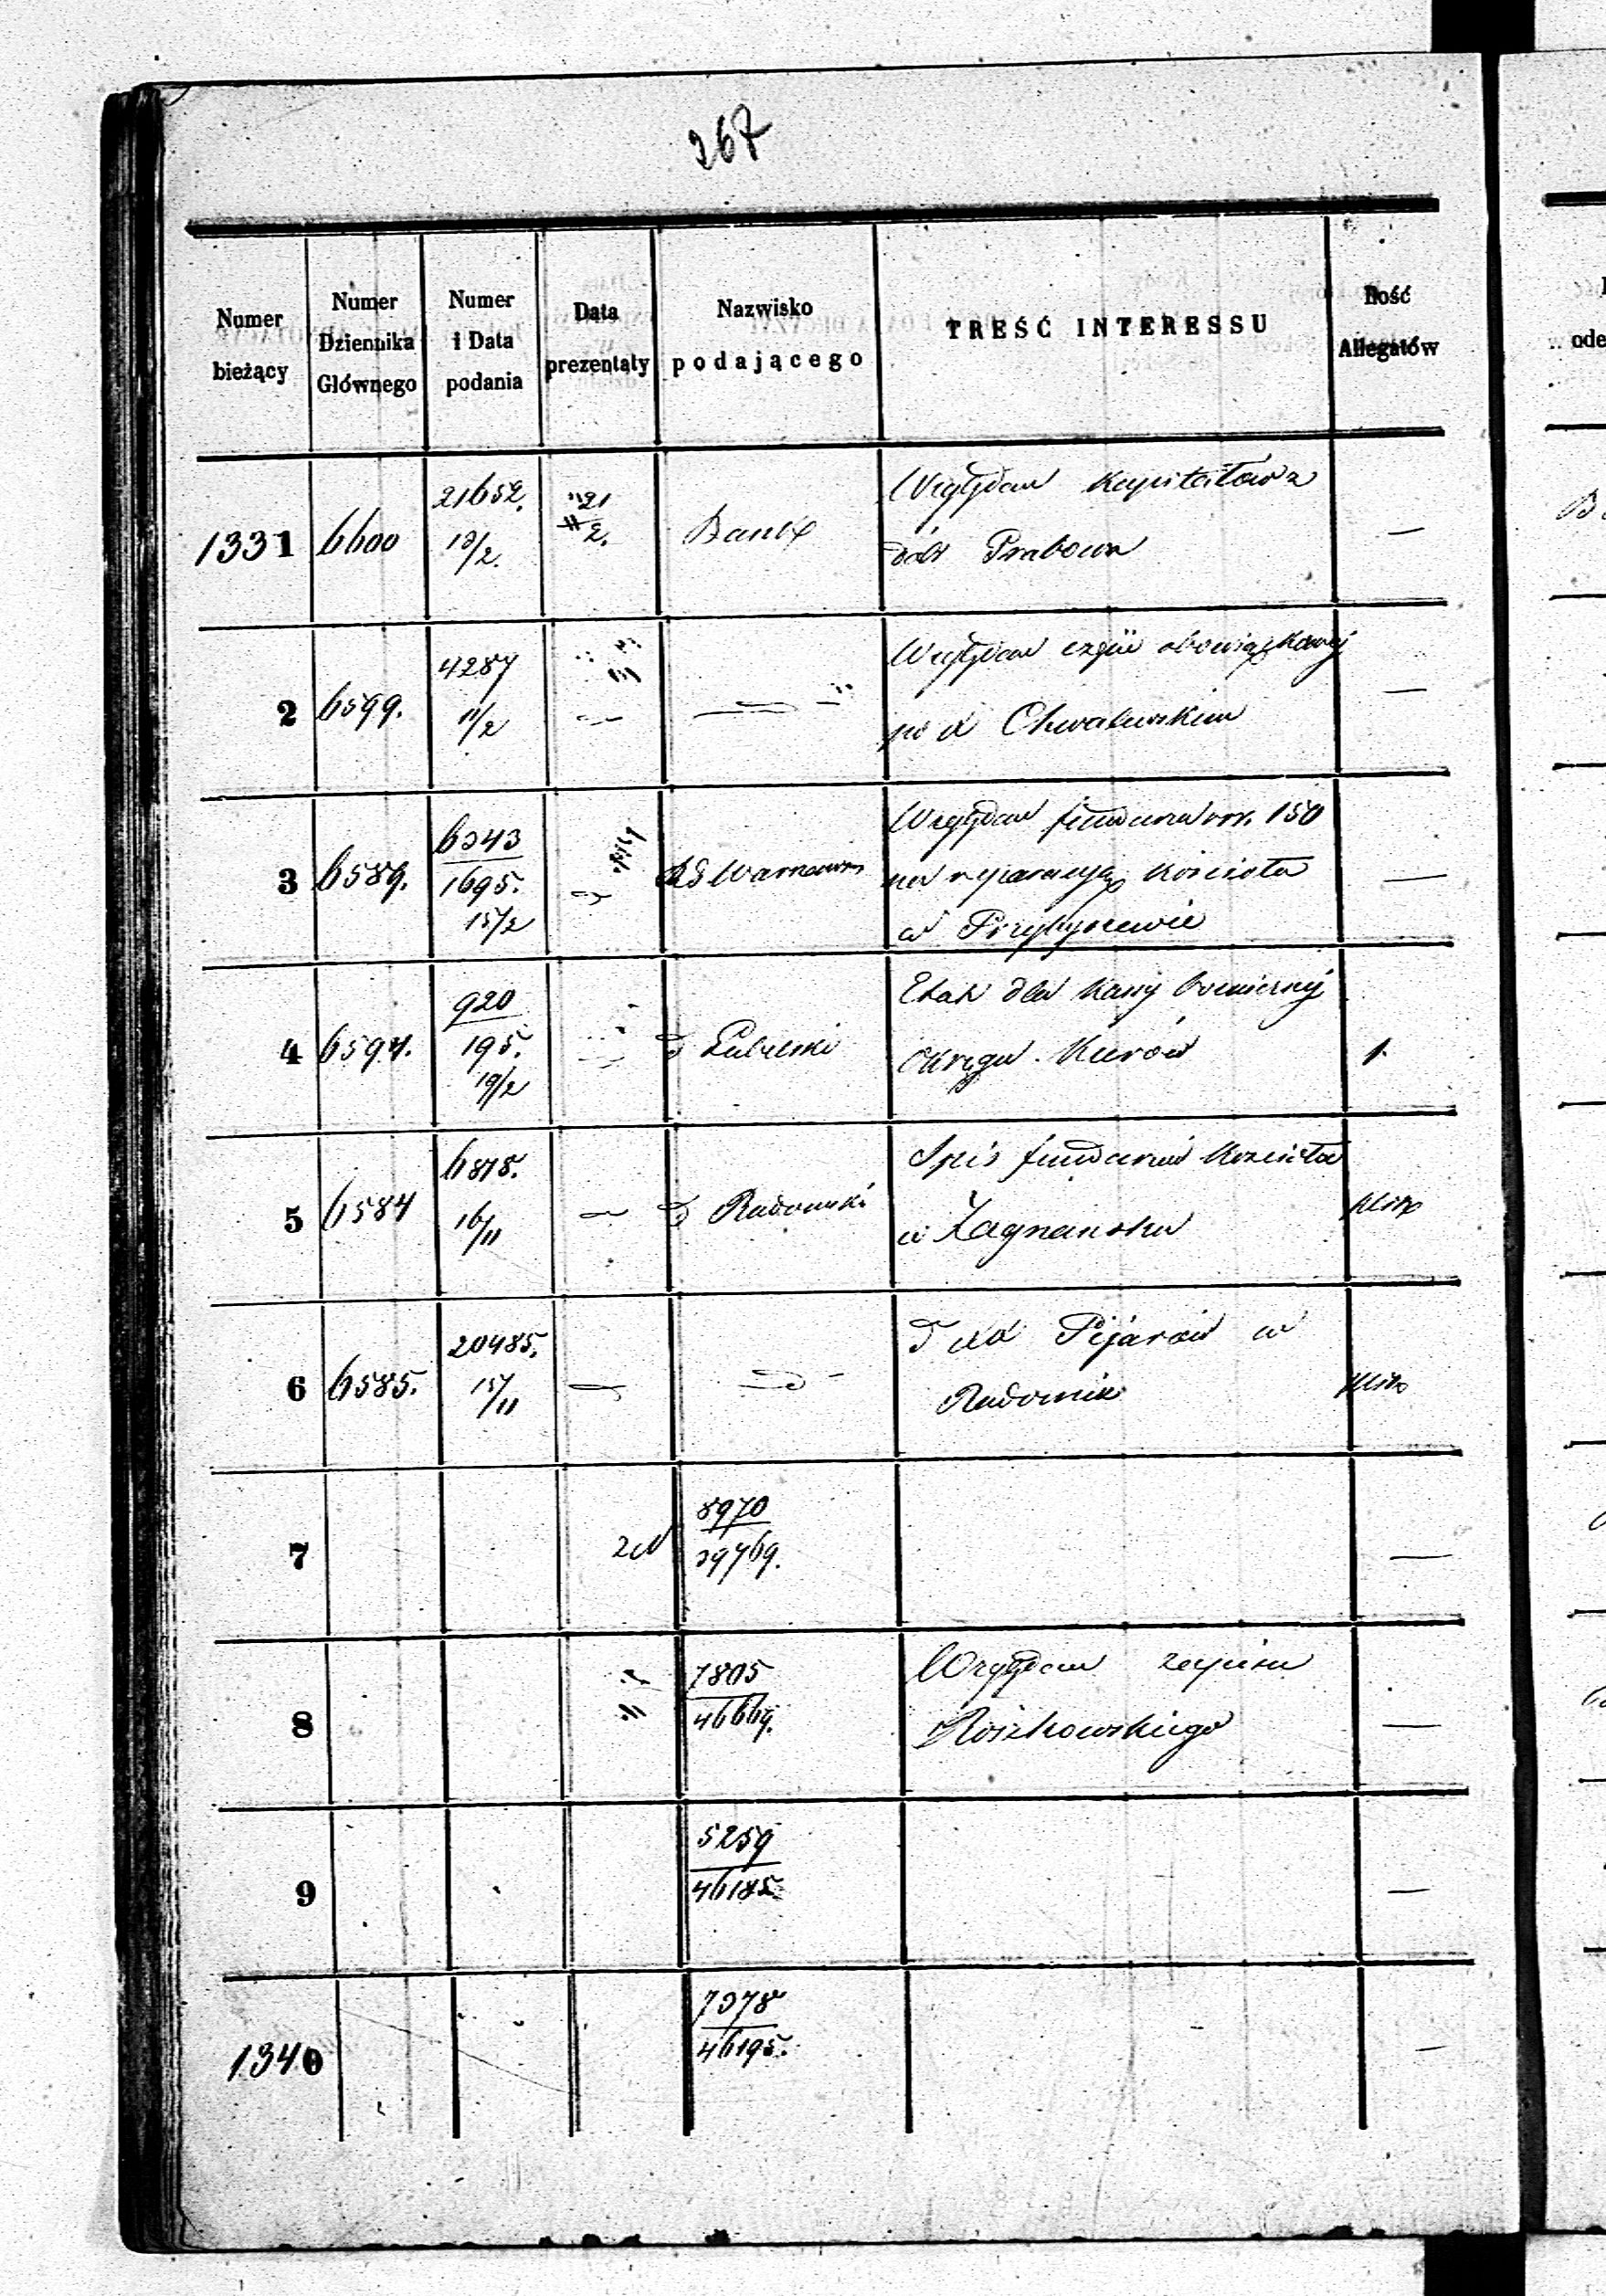 267
Numer bieżący
Numer Dziennika Głównego
Numer i Data podania
Data prezentaty
Nazwisko podającego
TREŚĆ INTERESSU
Ilość Allegatów
1331 6600 21652. 13/2. 21/2. Bank
Względem Kapitałów z
dóbr Grabowa —
2 6599. 4287 11/2 — —
Względem części obowiązkowej
po X Chwalewskim —
3 6589. 6343/1695. 15/2 — RG Warszaw
Względem funduszu rsr. 150
na reparacyą Kościoła
w Przybyszewie —
4 6594. 920/195. 19/2 — D Lubelski
Etat dla Kassy
Okręgu Kurów 1.
5 6584 6878. 16/11 — D Radomski
Spis funduszów Kościoła
w Zagnańsku
6 6585. 20485. 15/11 — —
D XX Pijarów w
Radomiu
7 8970/39769. —
8 7805/46669.
Względem zapisu
Roszkowskiego —
9 5259/46185. —
1340 7378/46195. —